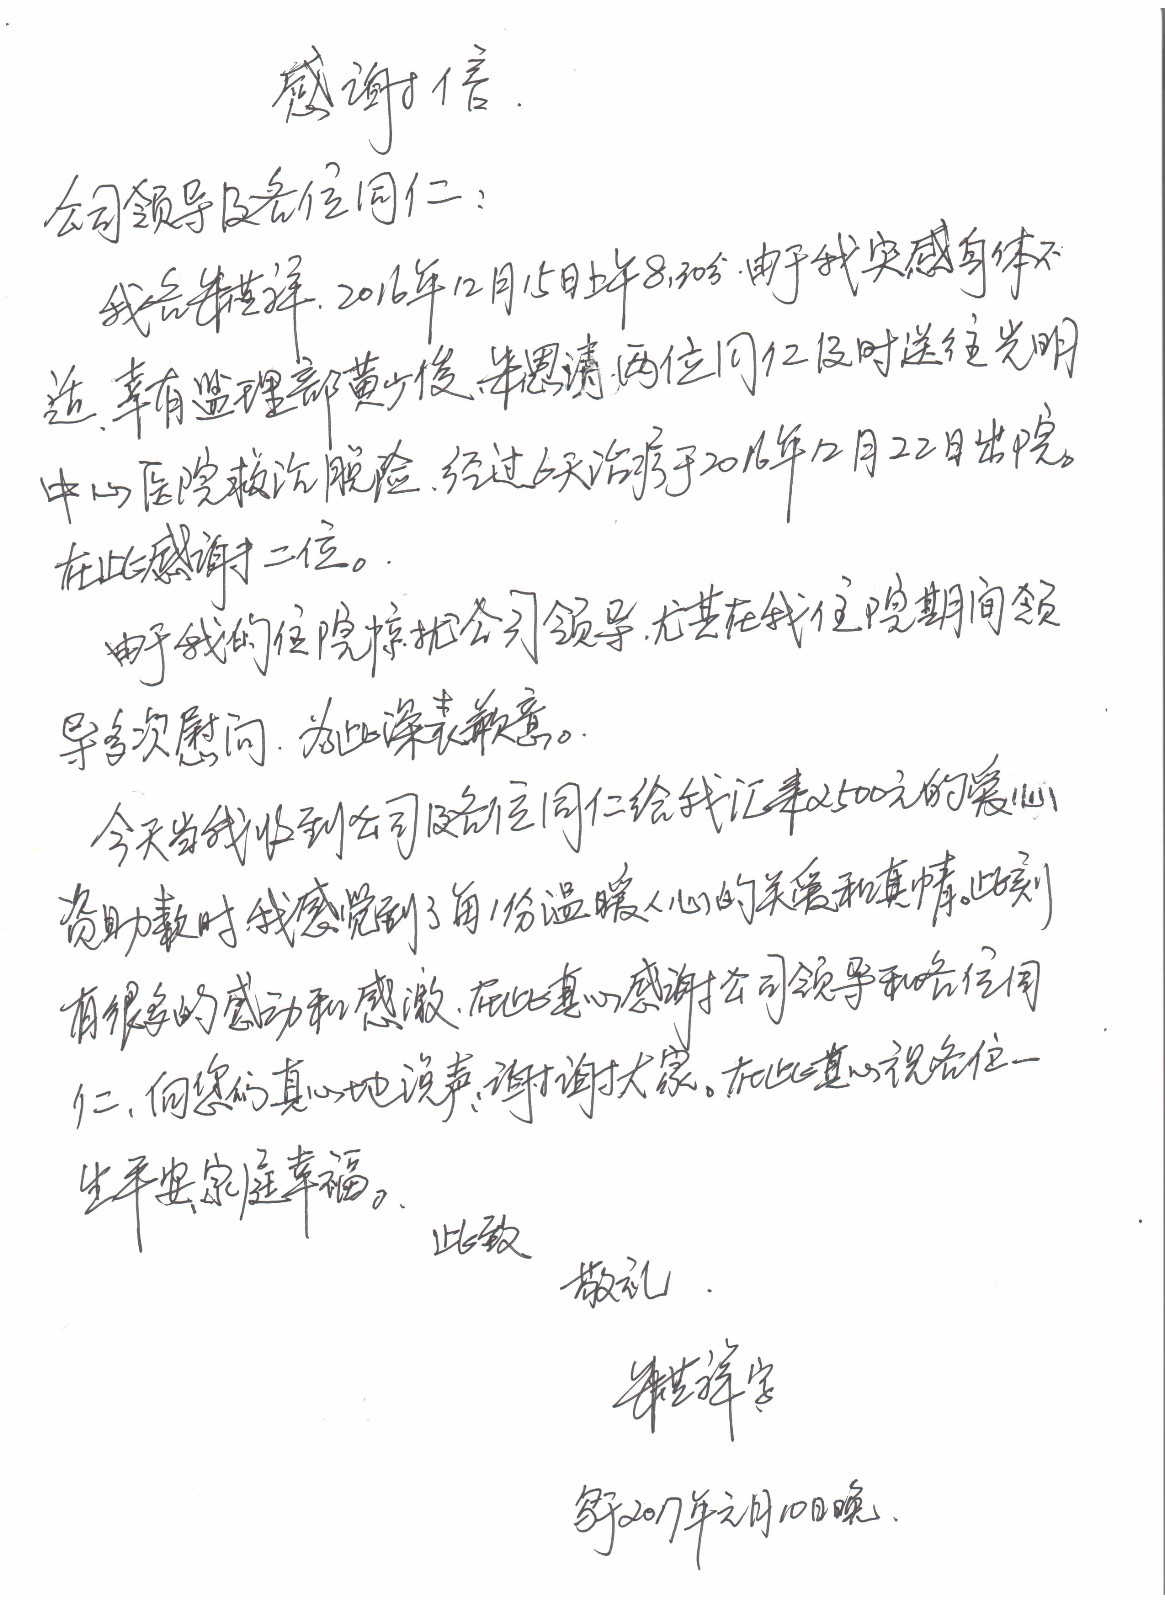 感谢信.
公司领导及各位同仁：
我名朱世祥，2016年12月15日上午8:30分.由于我突感身体不
适、幸有监理部黄少俊、朱恩请两位同仁及时送往光明
中心医院救治脱险、经过6天治疗于2016年12月22日出院。
在此感谢二位。
由于我的住院惊扰公司领导，尤其在我住院期间领
导多次慰问.为此深表歉意。
今天当我收到公司及各位同仁给我汇来2500元的爱心
资助款时，我感觉到了每1份温暖人心的关爱和真情。此刻
有很多的感动和感激，在此真心感谢公司领导和各位同
仁，向您们真心地说声：谢谢大家。在此真心祝各位一
生平安、家庭幸福。
此致
敬礼.
朱世祥字
写于2017年元月10日晚.